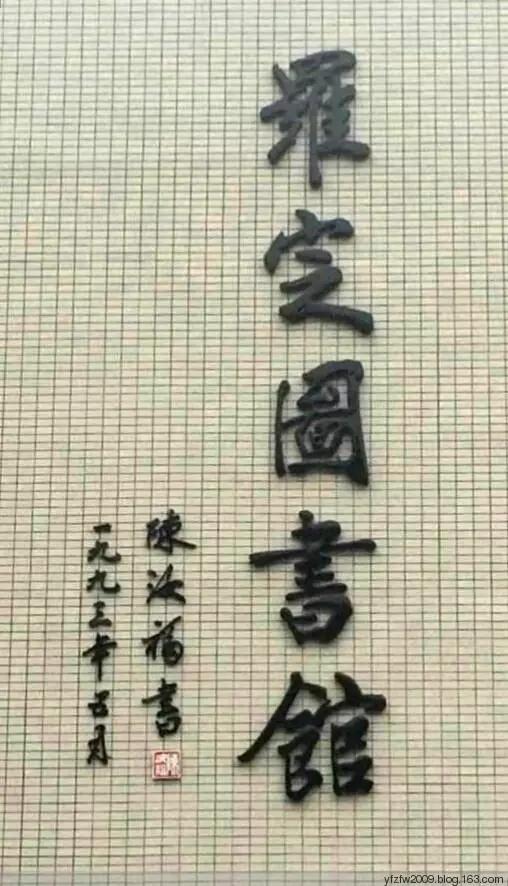 羅定圖書館
陳汝福書
一九九三年五月
yfzfw2009.blog.163.com